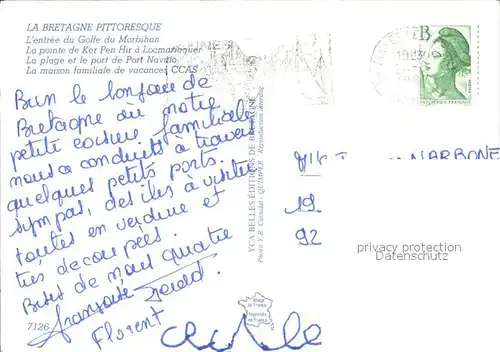 LA BRETAGNE PITTORESQUE
L'entrée du Golfe du Morbihan
La pointe de Ker Pen Hir à Locmariaquer
La plage et le port de Port Navalo
La maison familiale de vacances CCAS
Bien le bonjour de
Bretagne où notre
petite course familiale
nous a conduits à travers
quelques petits ports
sympas, des îles à visiter
toutes en verdure et
très découpées.
Bises de nous quatre
Françoise Gérard
Florent
7126
YCA BELLES ÉDITIONS DE BRETAGNE
Photo Y.R. Caoudal - QUIMPER Reproduction interdite
Image de France
Imprimée en France
B
RÉPUBLIQUE FRANÇAISE
NARBONE
19
92
privacy protection
Datenschutz